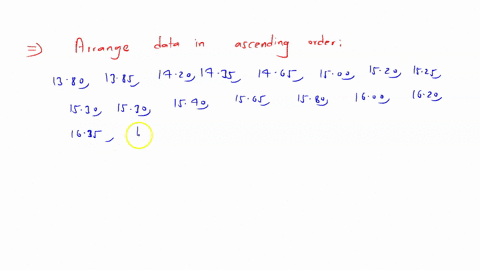 ⇒ Arrange data in ascending order:
13.80, 13.85, 14.20, 14.35, 14.65, 15.00, 15.20, 15.25,
15.30, 15.30, 15.40, 15.65, 15.80, 16.00, 16.20,
16.35, 1